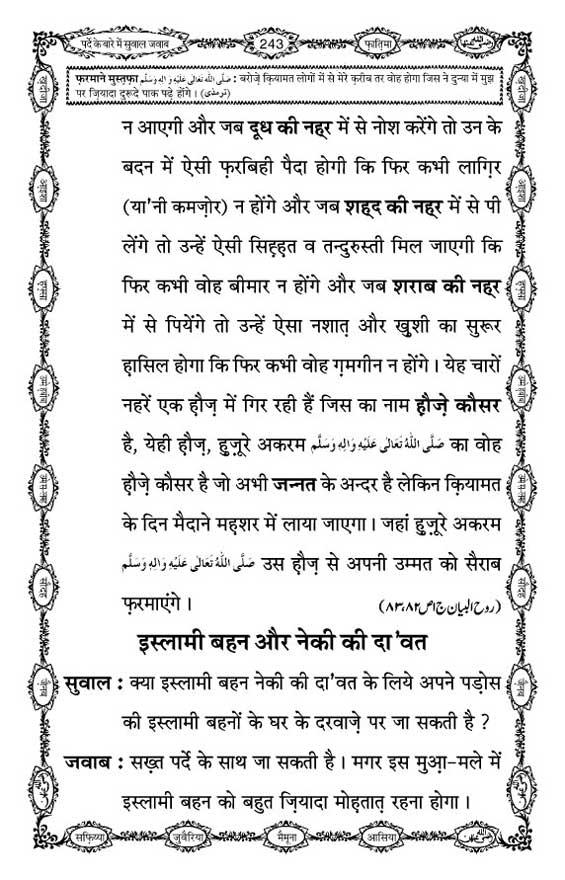 पर्दे के बारे में सुवाल जवाब
243
फ़ातिमा
फ़रमाने मुस्तफ़ा صَلَّى اللّٰهُ تَعَالٰى عَلَيْهِ وَاٰلِهٖ وَسَلَّم : बरोज़े क़ियामत लोगों में से मेरे क़रीब तर वोह होगा जिस ने दुन्या में मुझ
पर ज़ियादा दुरूदे पाक पढ़े होंगे । (ترمذی)
न आएगी और जब दूध की नह्र में से नोश करेंगे तो उन के
बदन में ऐसी फ़रबिही पैदा होगी कि फिर कभी लाग़िर
(या'नी कमज़ोर) न होंगे और जब शह्द की नह्र में से पी
लेंगे तो उन्हें ऐसी सिह़्ह़त व तन्दुरुस्ती मिल जाएगी कि
फिर कभी वोह बीमार न होंगे और जब शराब की नह्र
में से पियेंगे तो उन्हें ऐसा नशात़ और ख़ुशी का सुरूर
ह़ासिल होगा कि फिर कभी वोह ग़मगीन न होंगे । येह चारों
नहरें एक ह़ौज़ में गिर रही हैं जिस का नाम ह़ौज़े कौसर
है, येही ह़ौज़, हुज़ूरे अकरम صَلَّى اللّٰهُ تَعَالٰى عَلَيْهِ وَاٰلِهٖ وَسَلَّم का वोह
ह़ौज़े कौसर है जो अभी जन्नत के अन्दर है लेकिन क़ियामत
के दिन मैदाने मह़शर में लाया जाएगा । जहां हुज़ूरे अकरम
صَلَّى اللّٰهُ تَعَالٰى عَلَيْهِ وَاٰلِهٖ وَسَلَّم उस ह़ौज़ से अपनी उम्मत को सैराब
फ़रमाएंगे । (روح البیان ج۱ص۸۲،۸۳)
इस्लामी बहन और नेकी की दा'वत
सुवाल : क्या इस्लामी बहन नेकी की दा'वत के लिये अपने पड़ोस
की इस्लामी बहनों के घर के दरवाज़े पर जा सकती है ?
जवाब : सख़्त पर्दे के साथ जा सकती है । मगर इस मुआ़-मले में
इस्लामी बहन को बहुत ज़ियादा मोह़तात़ रहना होगा ।
सफ़िय्या
जुवैरिया
मैमूना
आसिया